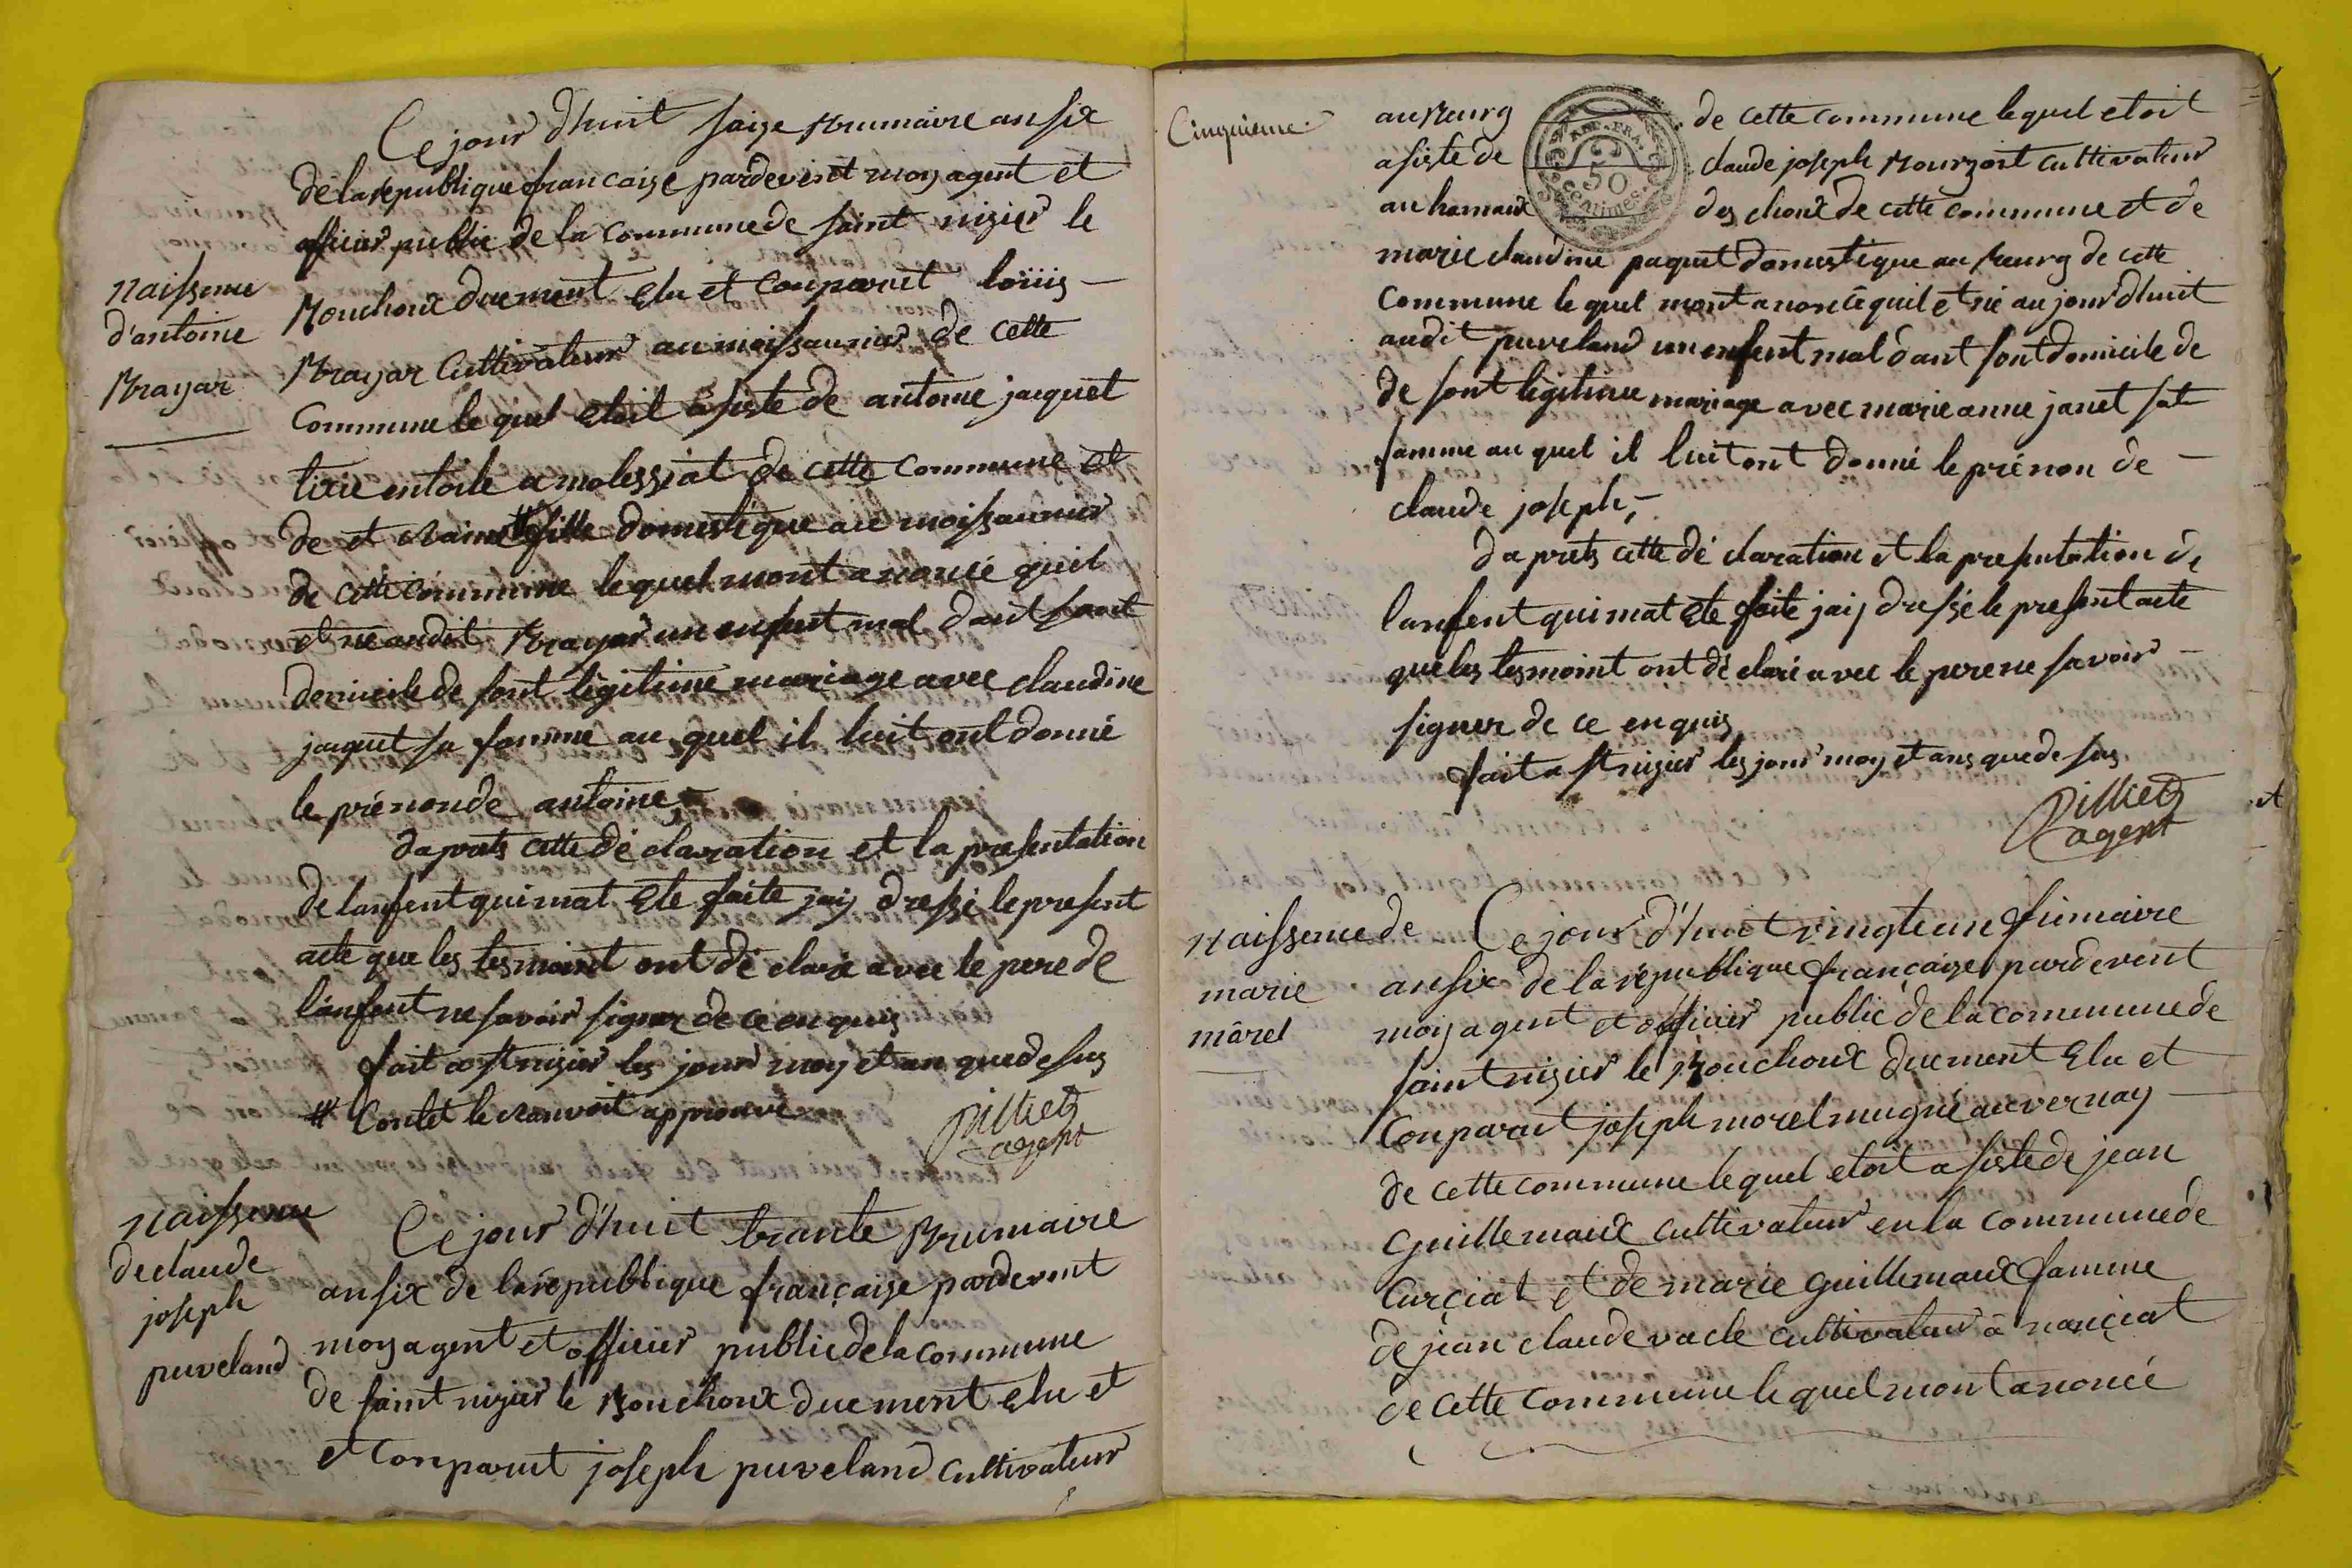 Ce jour d'huit saize Brumaire an six
de la republique francaise pardevent moy agent et
officier public de la commune de saint nizier le
Bouchoux duement Elu et conparut loüis
Brayar Cultivateur au moissaunier de cette
Commune le quel Etoit asiste de antoine jacquet
naissence
d'antoine
Brayar
de cette Commune et
de et fille domestique au moissaunier
de cette commune le quel mont anoncé quil
et né audit Brayar un enfent mal dant sont
domicile de sont légitime mariage avec claudine
jaquet sa famme au quel il luit ont donné
le prénon de antoine
daprets cette dé claration et la presentation
de lanfent qui mat Ete faite jaiy dressé le present
acte que les tesmoint ont dé claré avec le pere de
l'anfent ne savoir signer de ce en quis
fait a st nizier les jour moy et an que desus
# Contet le ranvoit approuvé
Pilliet
agent
naissence
de claude
joseph
puveland
Ce jour d'huit trante Brumaire
an six de la republique française pardevent
moy agent et officier public de la commune
de saint nizier le Bouchoux duement Elu et
et Conparut joseph puveland Cultivateur
Cinquieme
au Bourg de cette commune le quel etoit
asiste de claude joseph Bourgoit cultivateur
au hamaux des choux de cette commune et de
marie claudine paquet domestique au Bourg de cette
Commune le quel mont anoncé quil et né au jour dhuit
audit puveland un enfent mal dant sont domicile de
de sont légitime mariage avec marie anne janet sat
famme au quel il luit ont donné le prénon de
claude joseph,
daprets cette dé claration et la presentation de
lanfent qui mat Ete faite jaiy dressé le present acte
que les tesmoint ont dé claré avec le pere ne savoir
signer de ce en quis
fait a st nizier les jour moy et ans que de sus
Pilliet
agent
naissence de
marie
môrel
Ce jour d'huit vingte un frimaire
an six de la république française pardevent
moy agent et officier public de la commune de
saint nizier le Bouchoux duement Elu et
Conparut joseph morel mugnié au vernay
de cette commune le quel etoit asiste de jean
Guillemaux cultivateur en la commune de
Curçiat et de marie Guillemaux famme
de jean claude vacle cultivateur à nançiat
de cette Commune le quel mont anoncé
50
Centimes